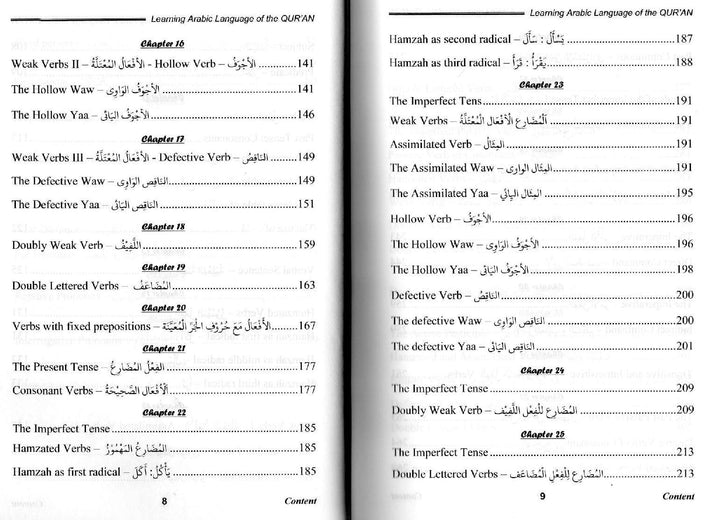 Learning Arabic Language of the QUR'AN
Chapter 16
Weak Verbs II – الأَفْعَالُ المُعْتَلَّةُ - Hollow Verb – الأَجْوَفُ ........141
The Hollow Waw – الأَجْوَفُ الوَاوِى ........141
The Hollow Yaa – الأَجْوَفُ اليَائى ........146
Chapter 17
Weak Verbs III – الأَفْعَالُ المُعْتَلَّةُ - Defective Verb – النَاقِصُ ........149
The Defective Waw – النَاقِص الوَاوِى ........149
The Defective Yaa – النَاقِص اليَائى ........151
Chapter 18
Doubly Weak Verb – اللَّفِيْفُ ........159
Chapter 19
Double Lettered Verbs – المُضَاعَفُ ........163
Chapter 20
Verbs with fixed prepositions – الأَفْعَالُ مَعَ حُرُوْفِ الجَرِّ المُعَيَّنَة ........167
Chapter 21
The Present Tense – الفِعْلُ المُضَارِعُ ........177
Consonant Verbs – الْأَفْعَال الصَّحِيْحَةُ ........177
Chapter 22
The Imperfect Tense ........185
Hamzated Verbs – المُضَارِعُ المَهْمُوْزُ ........185
Hamzah as first radical – يَأْكُلُ : أَكَلَ ........185
8
Content
Learning Arabic Language of the QUR'AN
Hamzah as second radical – يَسْأَلُ : سَأَلَ ........187
Hamzah as third radical – يَقْرَأُ : قَرَأَ ........188
Chapter 23
The Imperfect Tens ........191
Weak Verbs – اَلْمُضَارِع الأَفْعَال المُعْتَلَّةُ ........191
Assimilated Verb – المِثَالُ ........191
The Assimilated Waw – المِثَال الوارى ........191
The Assimilated Yaa – المِثَال اليِائِي ........195
Hollow Verb – الأَجْوَفُ ........196
The Hollow Waw – الأَجْوَفُ الوَاوِى ........196
The Hollow Yaa – الأَجْوَفُ اليَائى ........198
Defective Verb – النَاقِصُ ........200
The defective Waw – النَاقِص الوَاوِى ........200
The defective Yaa – النَاقِص اليَائى ........201
Chapter 24
The Imperfect Tense ........209
Doubly Weak Verb – المُضَارِع لِلْفِعْلِ اللَّفِيْف ........209
Chapter 25
The Imperfect Tense ........213
Double Lettered Verbs – المُضَارِع لِلْفِعْلِ الْمُضَاعَف ........213
9
Content